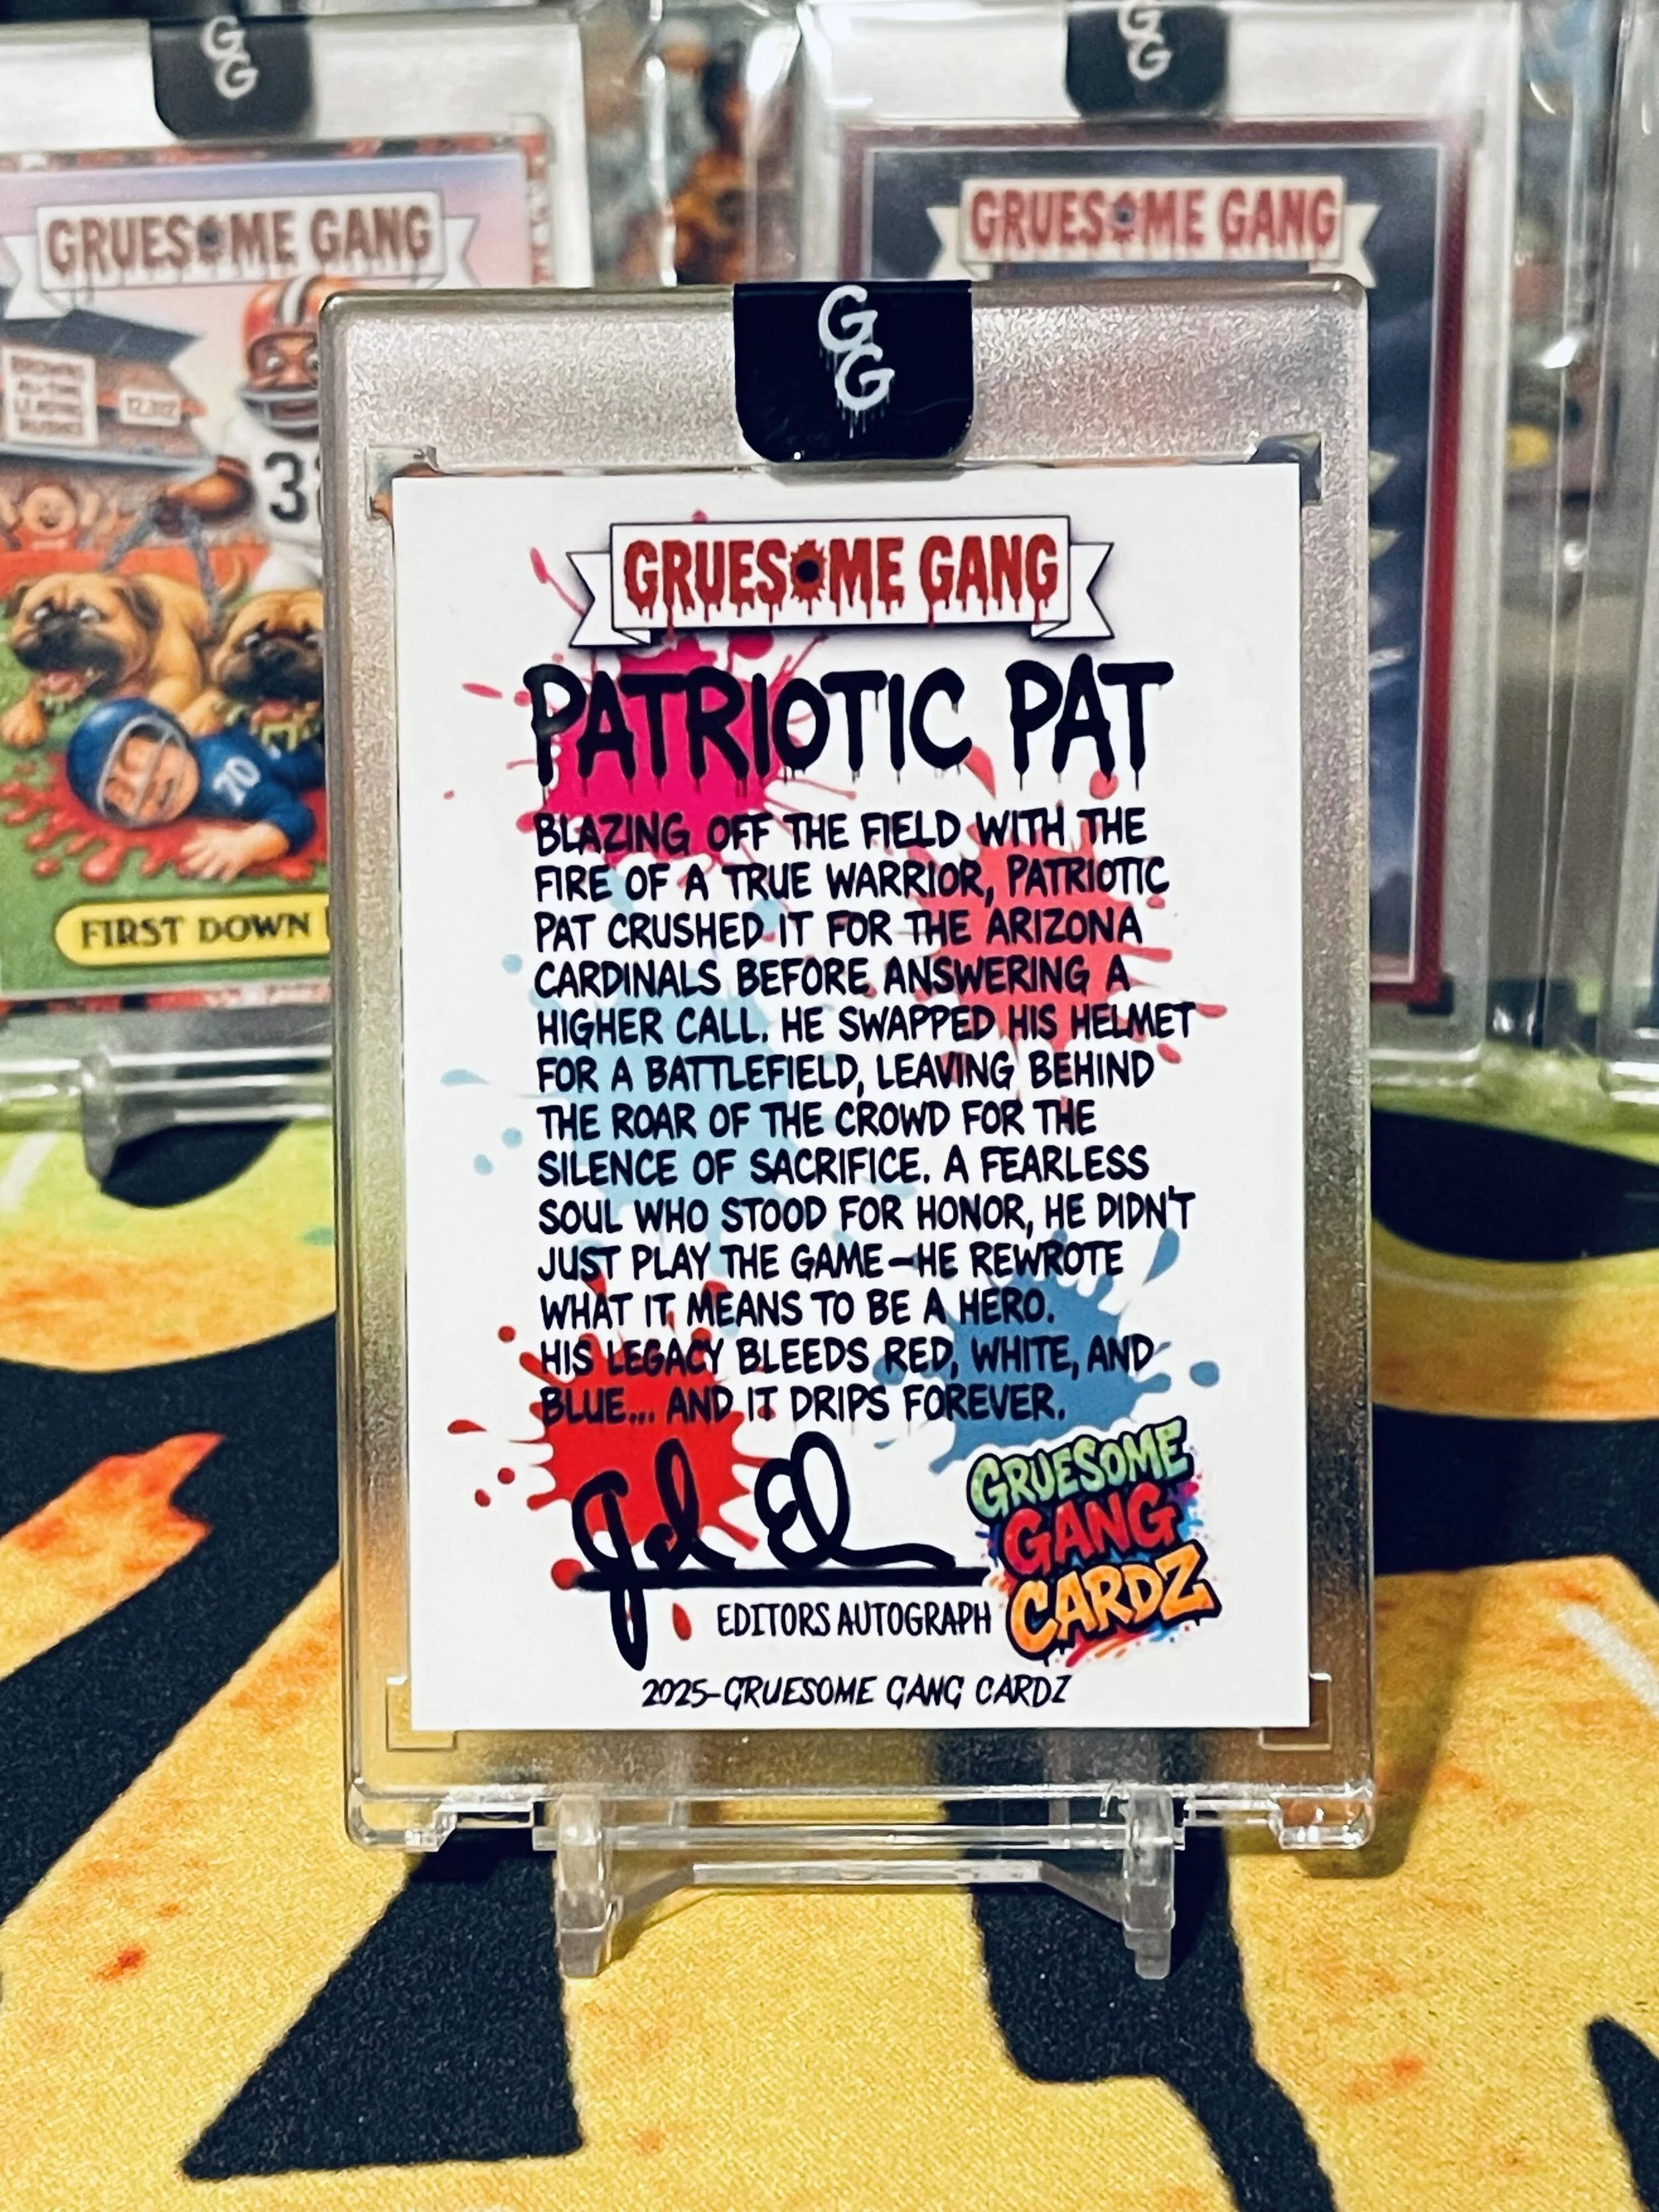 G
G
G
G
GRUESOME GANG
GRUESOME GANG
G
G
12,312
3
70
FIRST DOWN
GRUESOME GANG
PATRIOTIC PAT
BLAZING OFF THE FIELD WITH THE
FIRE OF A TRUE WARRIOR, PATRIOTIC
PAT CRUSHED IT FOR THE ARIZONA
CARDINALS BEFORE ANSWERING A
HIGHER CALL. HE SWAPPED HIS HELMET
FOR A BATTLEFIELD, LEAVING BEHIND
THE ROAR OF THE CROWD FOR THE
SILENCE OF SACRIFICE. A FEARLESS
SOUL WHO STOOD FOR HONOR, HE DIDN'T
JUST PLAY THE GAME—HE REWROTE
WHAT IT MEANS TO BE A HERO.
HIS LEGACY BLEEDS RED, WHITE, AND
BLUE... AND IT DRIPS FOREVER.
EDITORS AUTOGRAPH
GRUESOME
GANG
CARDZ
2025-GRUESOME GANG CARDZ